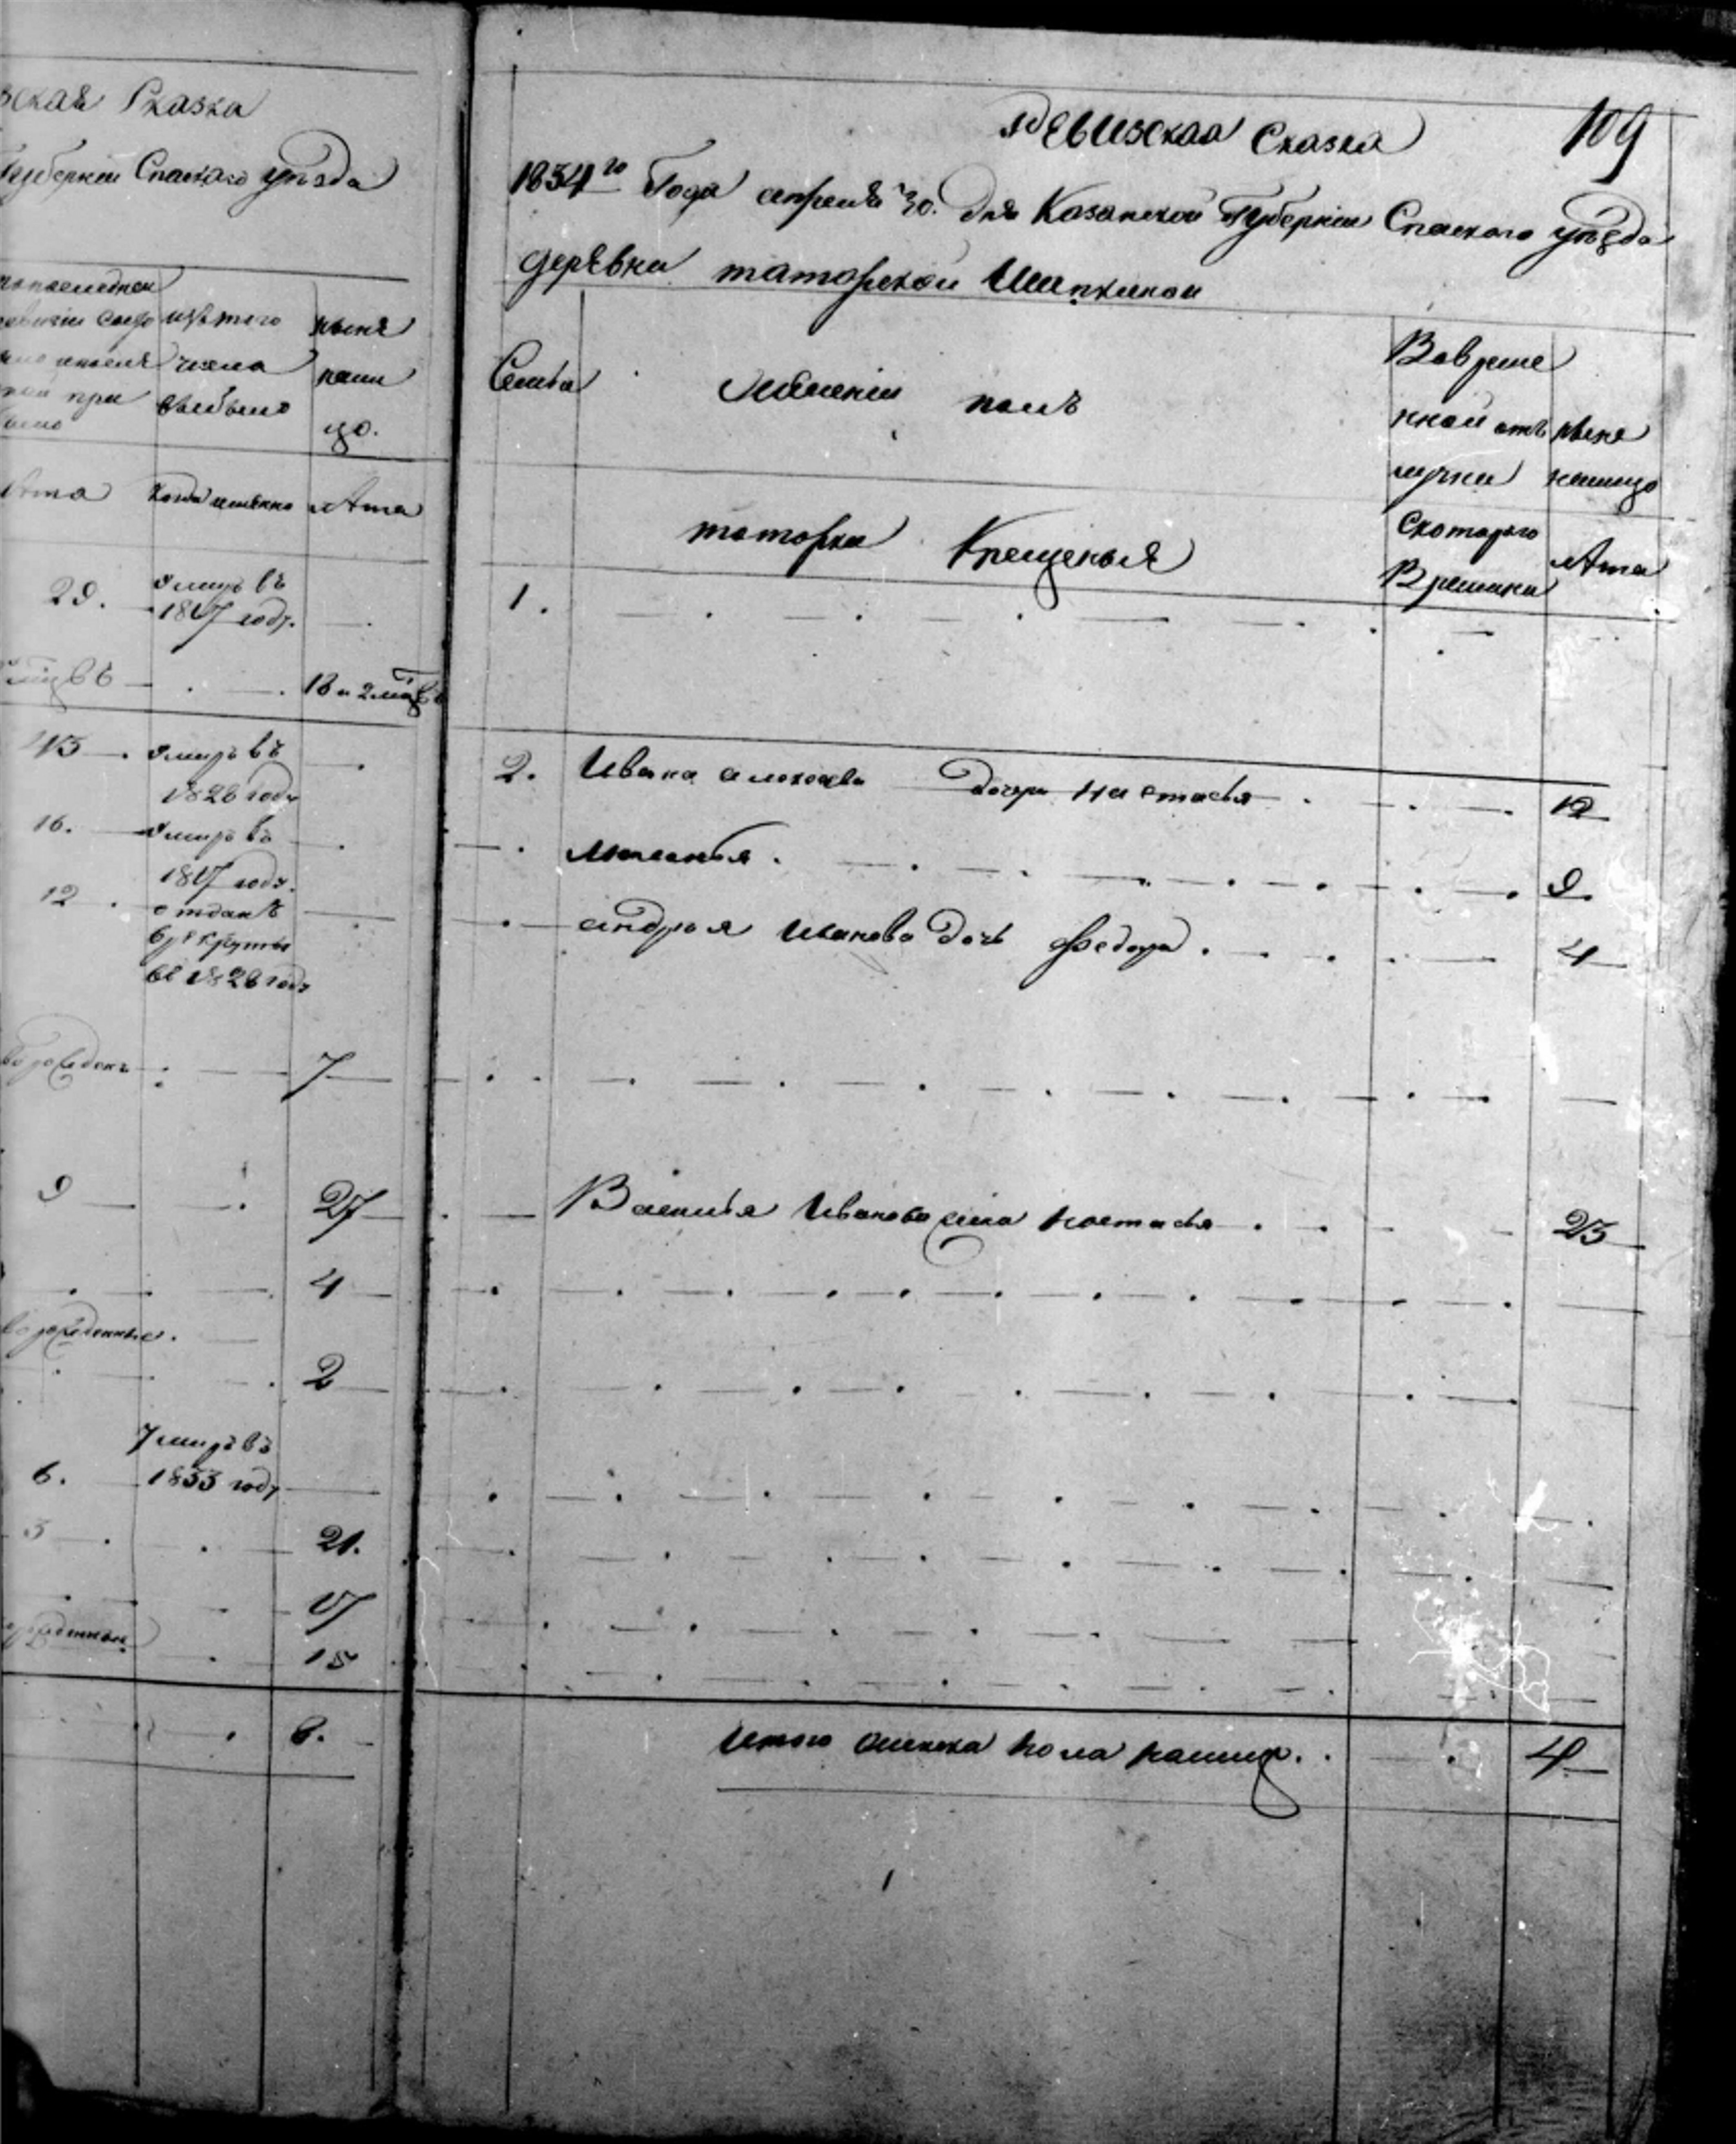 ская Сказка
Губернии Спаскаго уѣзда
попоследней
ревизии состо
изътого
числа
выбыло
ныне
нали
цо.
Лета
когда имянно
Лета
29.
умиръ въ
1817 году.
18 и 2 мцвъ
45
умиръ въ
1826 году
16.
умиръ въ
1817 году.
12
отданъ
врекруты
въ 1826 году
7
9
27
4
2
6.
умиръ въ
1833 году
3
21.
17
15
8.
109
Ревизская Сказка
1834го Года апреля 30. дня Казанской Губернии Спаского уѣзда
деревни таторской Шапкиной
Семьи
женский полъ
Вовреме
нной отъ
лучки
ныне
налицо
таторки Крещеныя
Скоторого
Времяни
Лета
1.
2. Ивана алексеева дочери Настасья 12
Маланья. 9.
андрея Иванова дочь Федора. 4
Василья Иванова жена Настасья 23
Итого женска пола налицо. 4